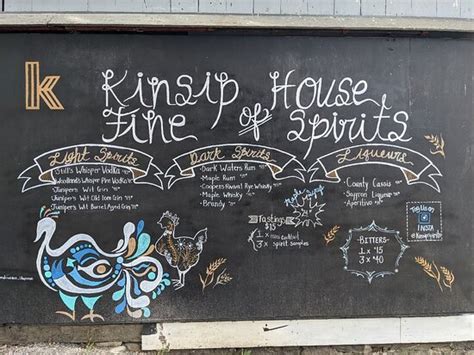 k
Kinsip House
of
Fine Spirits
Light Spirits
Still's Whisper Vodka
Woodlands Whisper Pine Vodka
Juniper's Wit Gin
Juniper's Wit Old Tom Gin
Juniper's Wit Barrel Aged Gin
Dark Spirits
Dark Waters Rum
Maple Rum
Coopers Revival Rye Whisky
Maple Whisky
Brandy
Liqueurs
County Cassis
Saffron Liqueur
Aperitivo
Tastings
$15
1 x mini cocktail
3 x spirit samples
BITTERS
1 x $15
3 x $40
INSTA